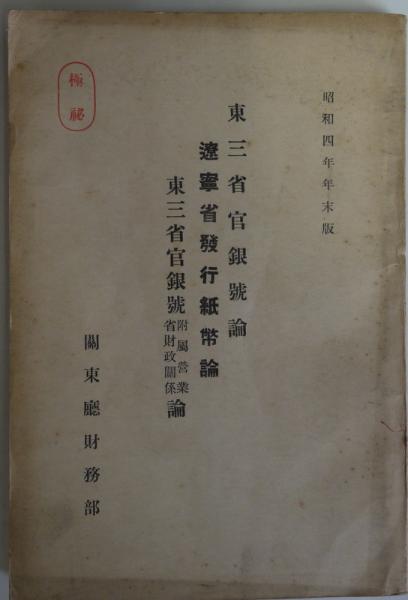 昭和四年年末版
東三省官銀號論
遼寧省發行紙幣論
東三省官銀號附屬營業省財政關係論
關東廳財務部
極祕